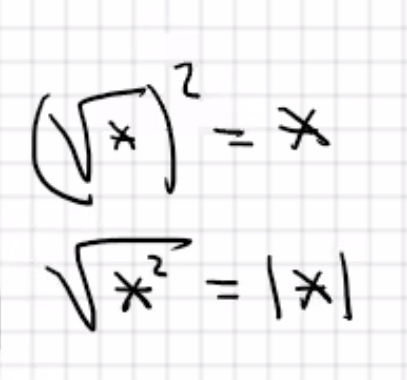 (√x)² = x
√x² = |x|